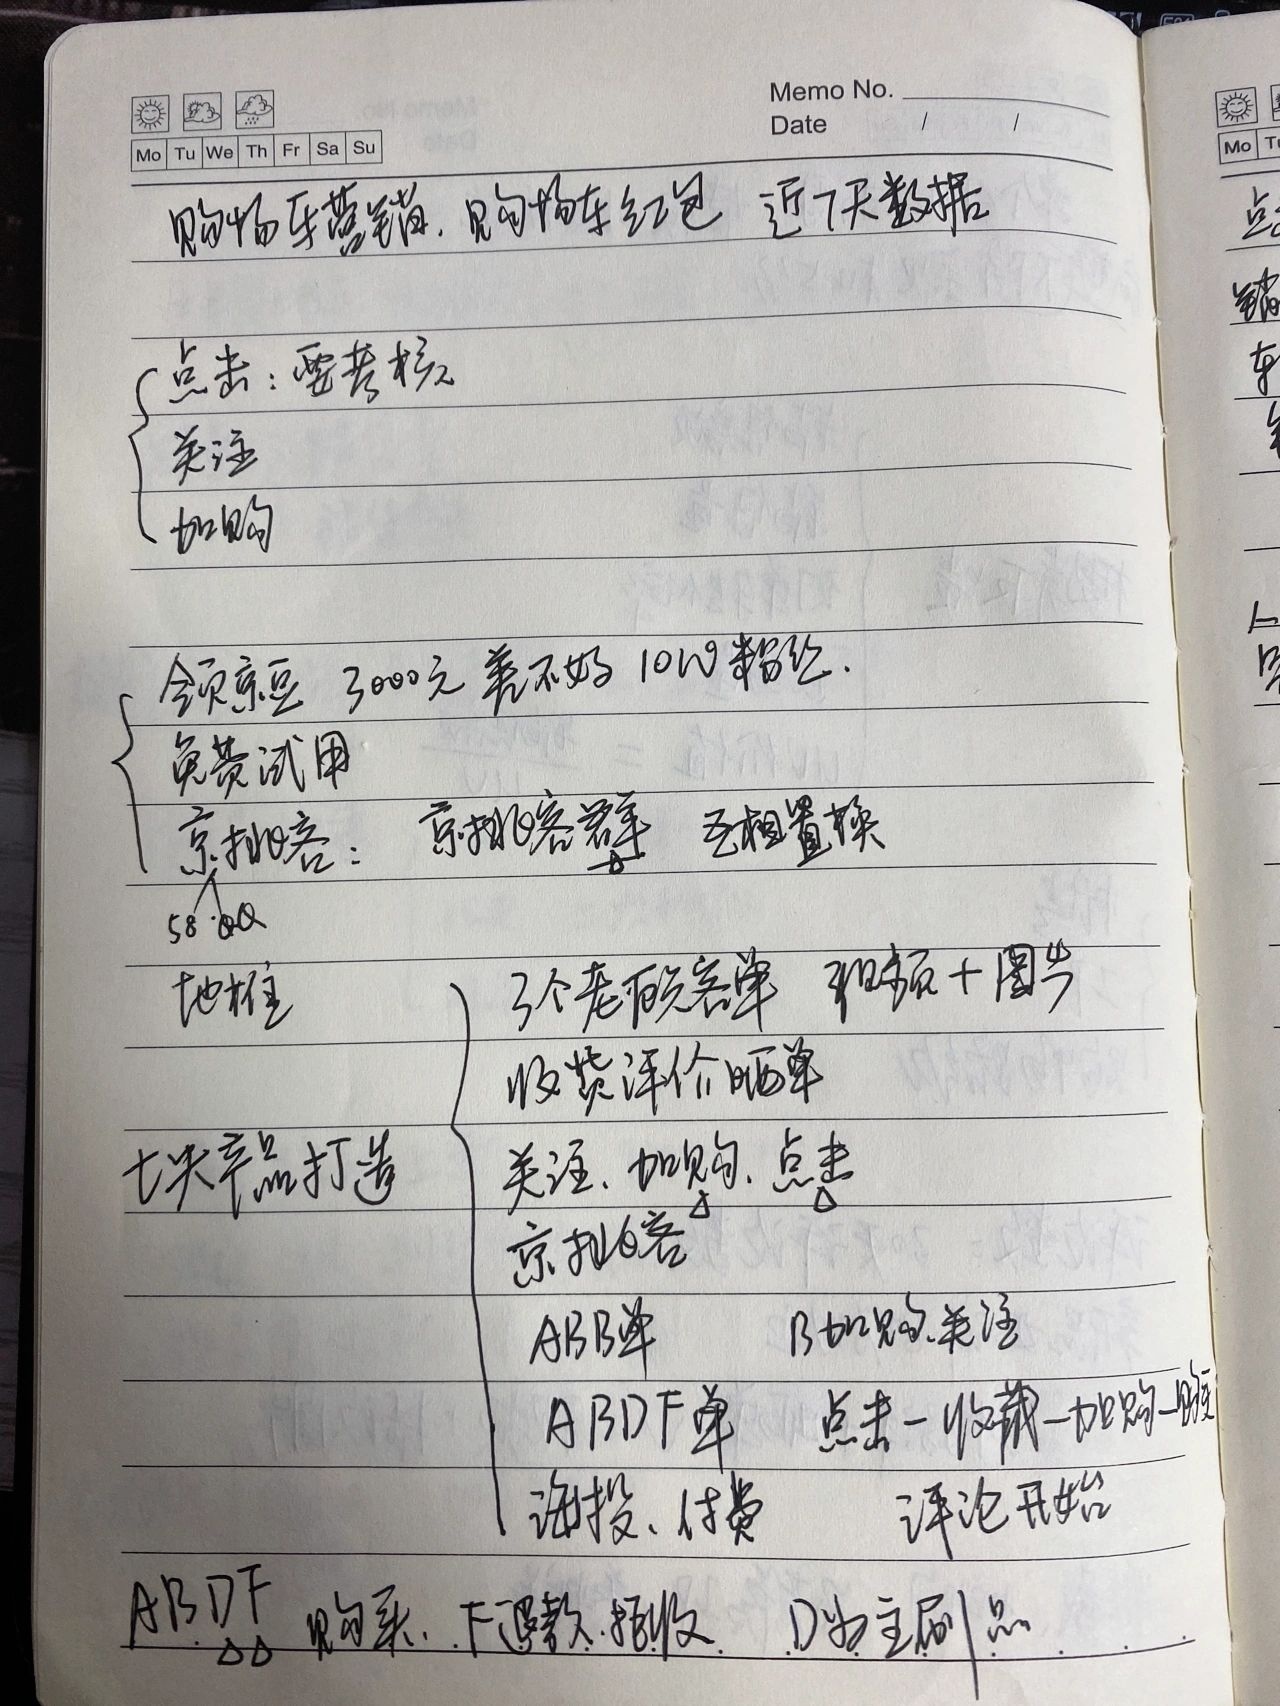 Memo No.
Date / /
Mo Tu We Th Fr Sa Su
购物车营销、购物车红包 近7天数据
点击：要考核
关注
加购
领京豆 3000元 差不多 10W粉丝.
免费试用
京挑客： 京挑客群 互相置换
58 QQ
地推
3个老顾客单 视频+图片
收货评价晒单
七天产品打造
关注、加购、点击
京挑客
ABB单 B加购、关注
ABDF单 点击-收藏-加购-购买
海投、付费 评论开始
ABDF 购买、F退款、拒收 D为主刷品
Mo
点
销
车